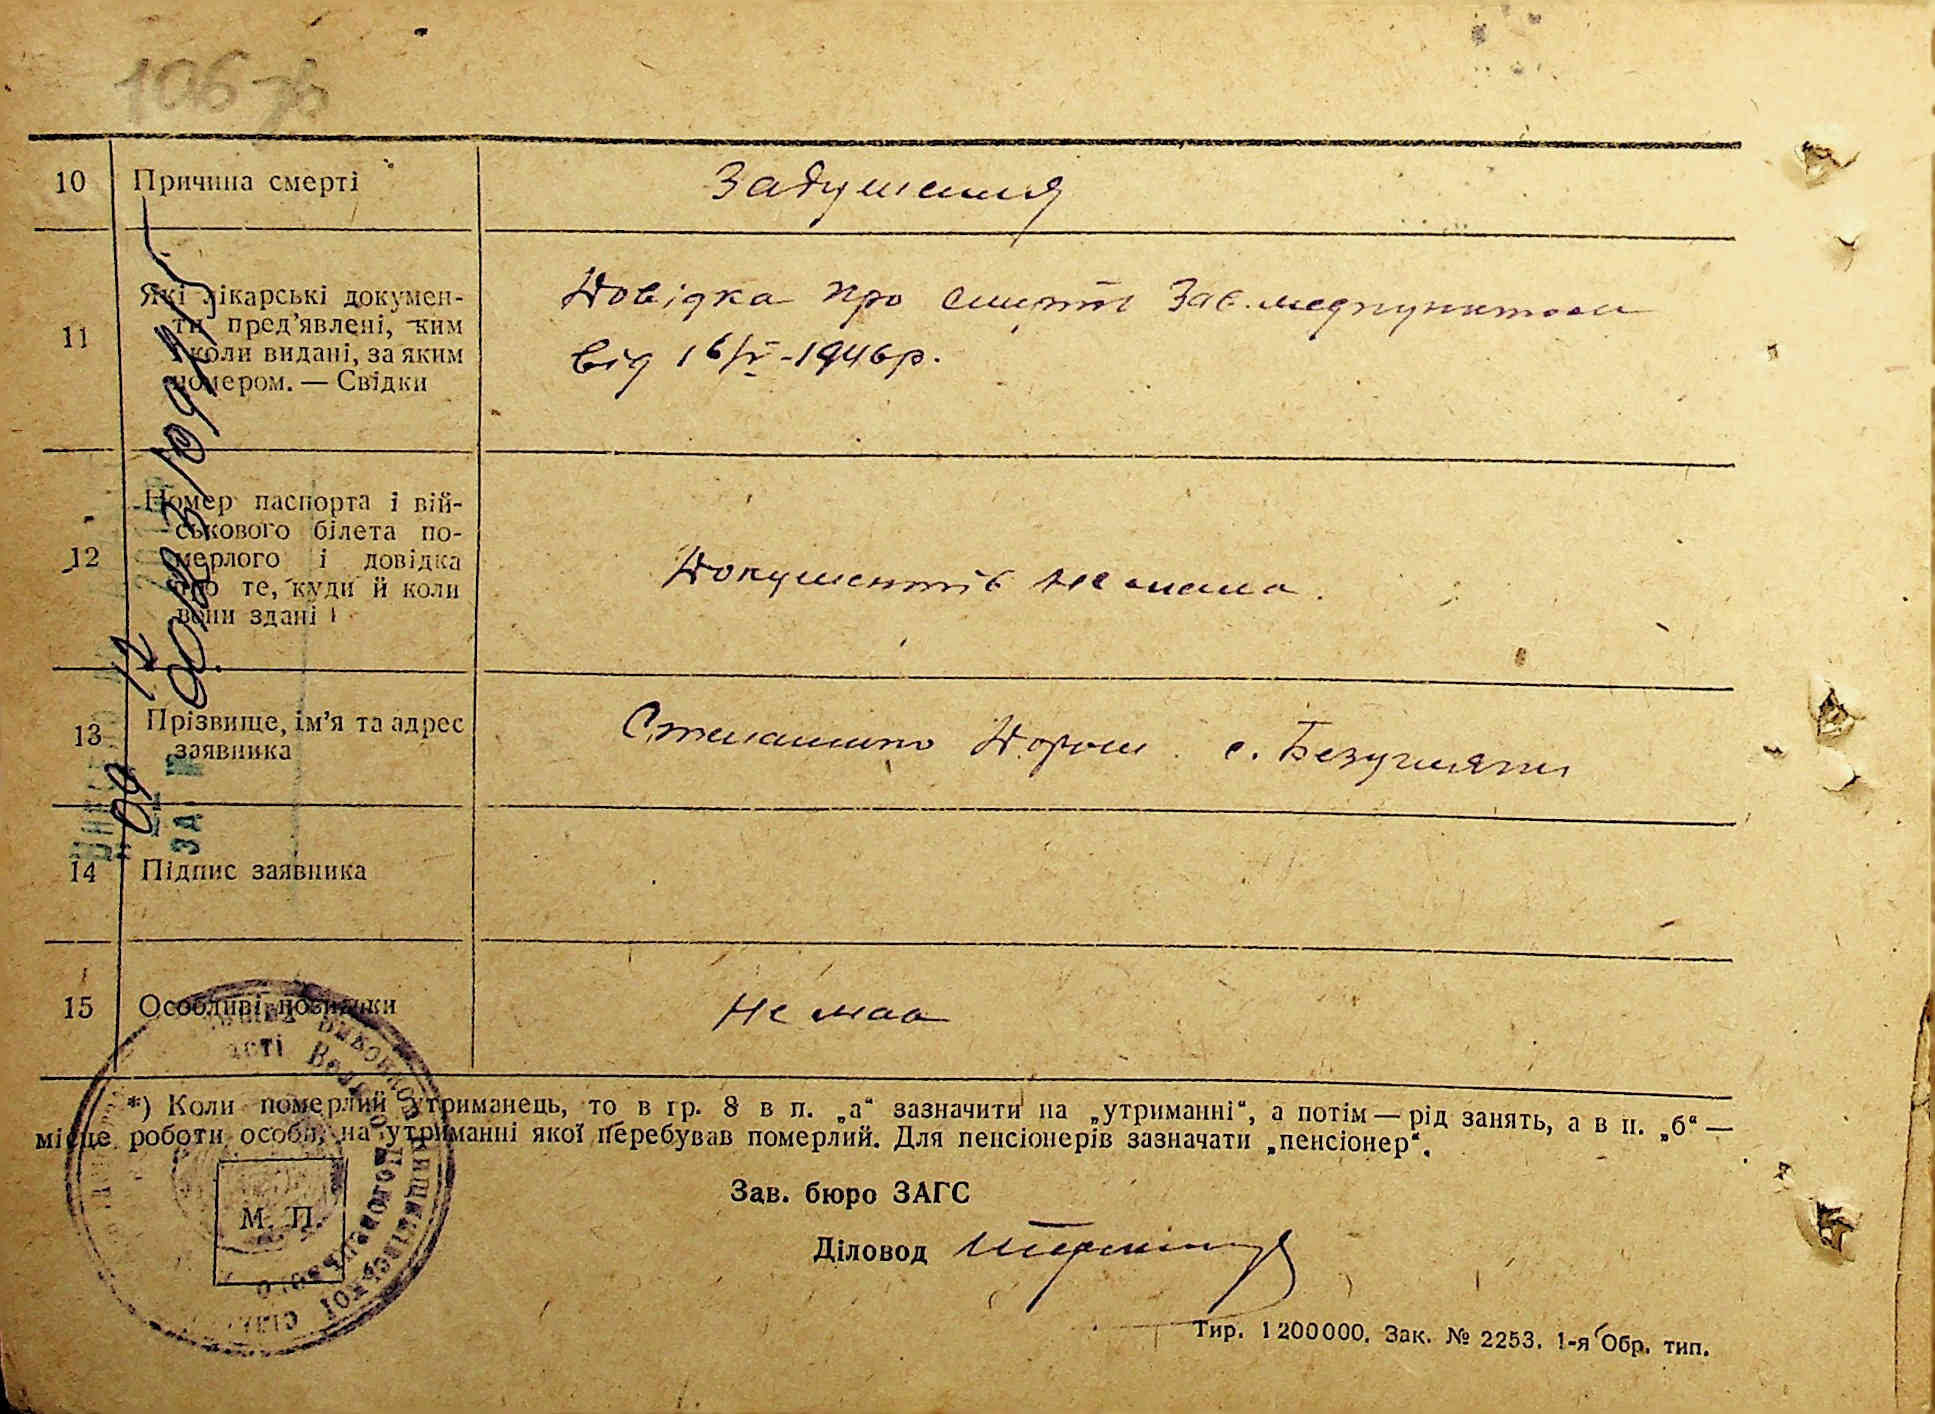 106 зв
10 Причина смерті Задушення
11 Які лікарські докумен-
ти пред’явлені, ким
і коли видані, за яким
номером. — Свідки
Довідка про смерть Зав. медпунктом
від 16/IV-1946р.
12 Номер паспорта і вій-
ськового білета по-
мерлого і довідка
про те, куди й коли
вони здані
Документів не мала.
13 Прізвище, ім’я та адрес
заявника
Степаненко с.
14 Підпис заявника
15 Особливі позначки Немає
*) Коли померлий утриманець, то в гр. 8 в п. „а“ зазначити на „утриманні“, а потім — рід занять, а в п. „б“ —
місце роботи особи, на утриманні якої перебував померлий. Для пенсіонерів зазначати „пенсіонер“.
М. П.
Зав. бюро ЗАГС
Діловод
Тир. 1200000. Зак. № 2253. 1-я Обр. тип.